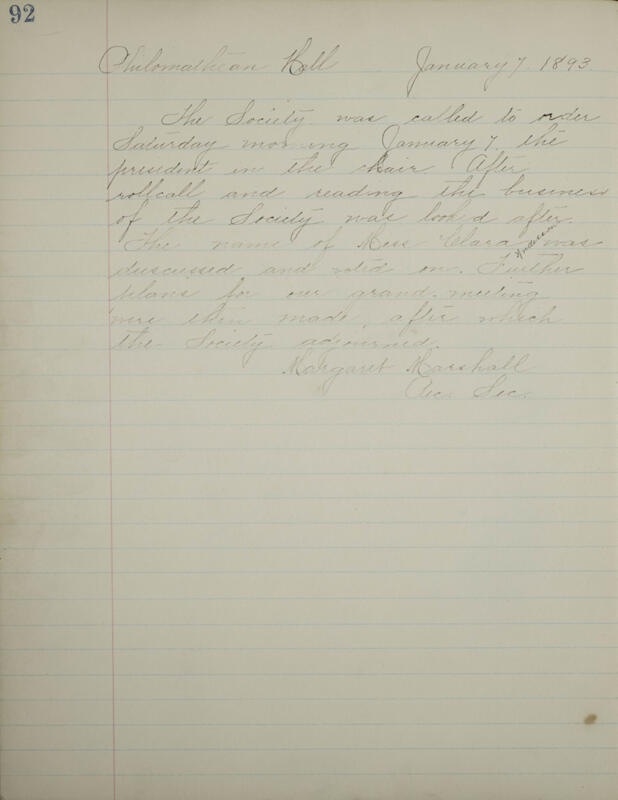 92
Philomathean Hall January 7. 1893.
The Society was called to order
Saturday morning January 7. the
president in the chair. After
rollcall and reading the business
of the Society was looked after.
The name of Miss Clara Anderson was
discussed and voted on. Further
plans for our grand meeting
were then made, after which
the Society adjourned.
Margaret Marshall
Rec. Sec.